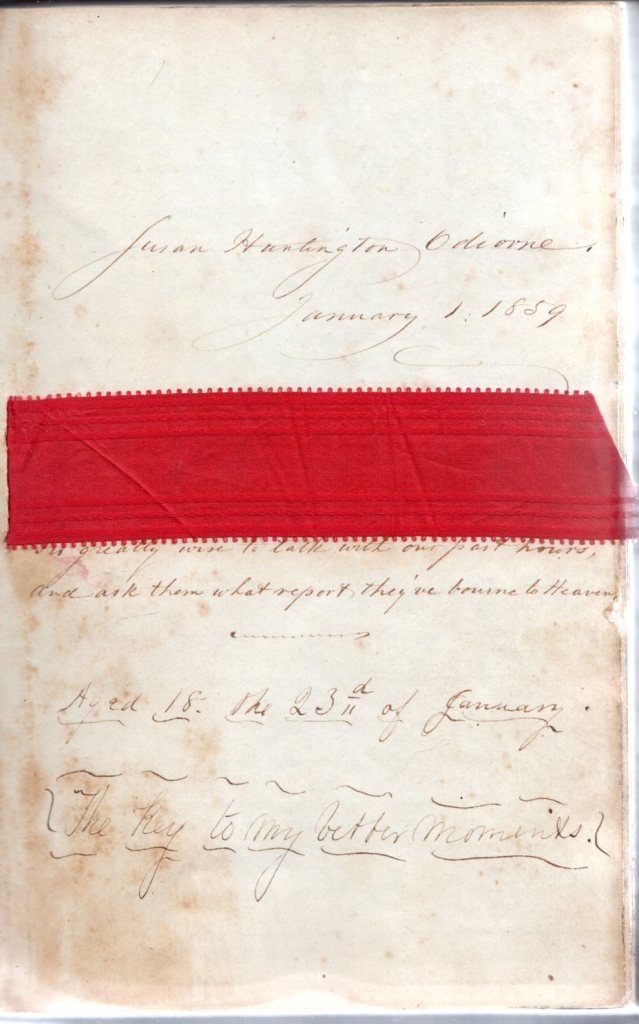 Susan Huntington Odiorne.
January 1. 1859
'Tis greatly wise to talk with our past hours,
and ask them what report they've bourne to Heaven
Aged 18. the 23d of January.
{The Key to my better moments.}